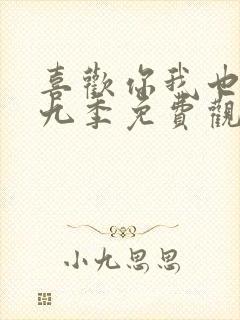 喜歡你我也
九季免費觀
小九思思